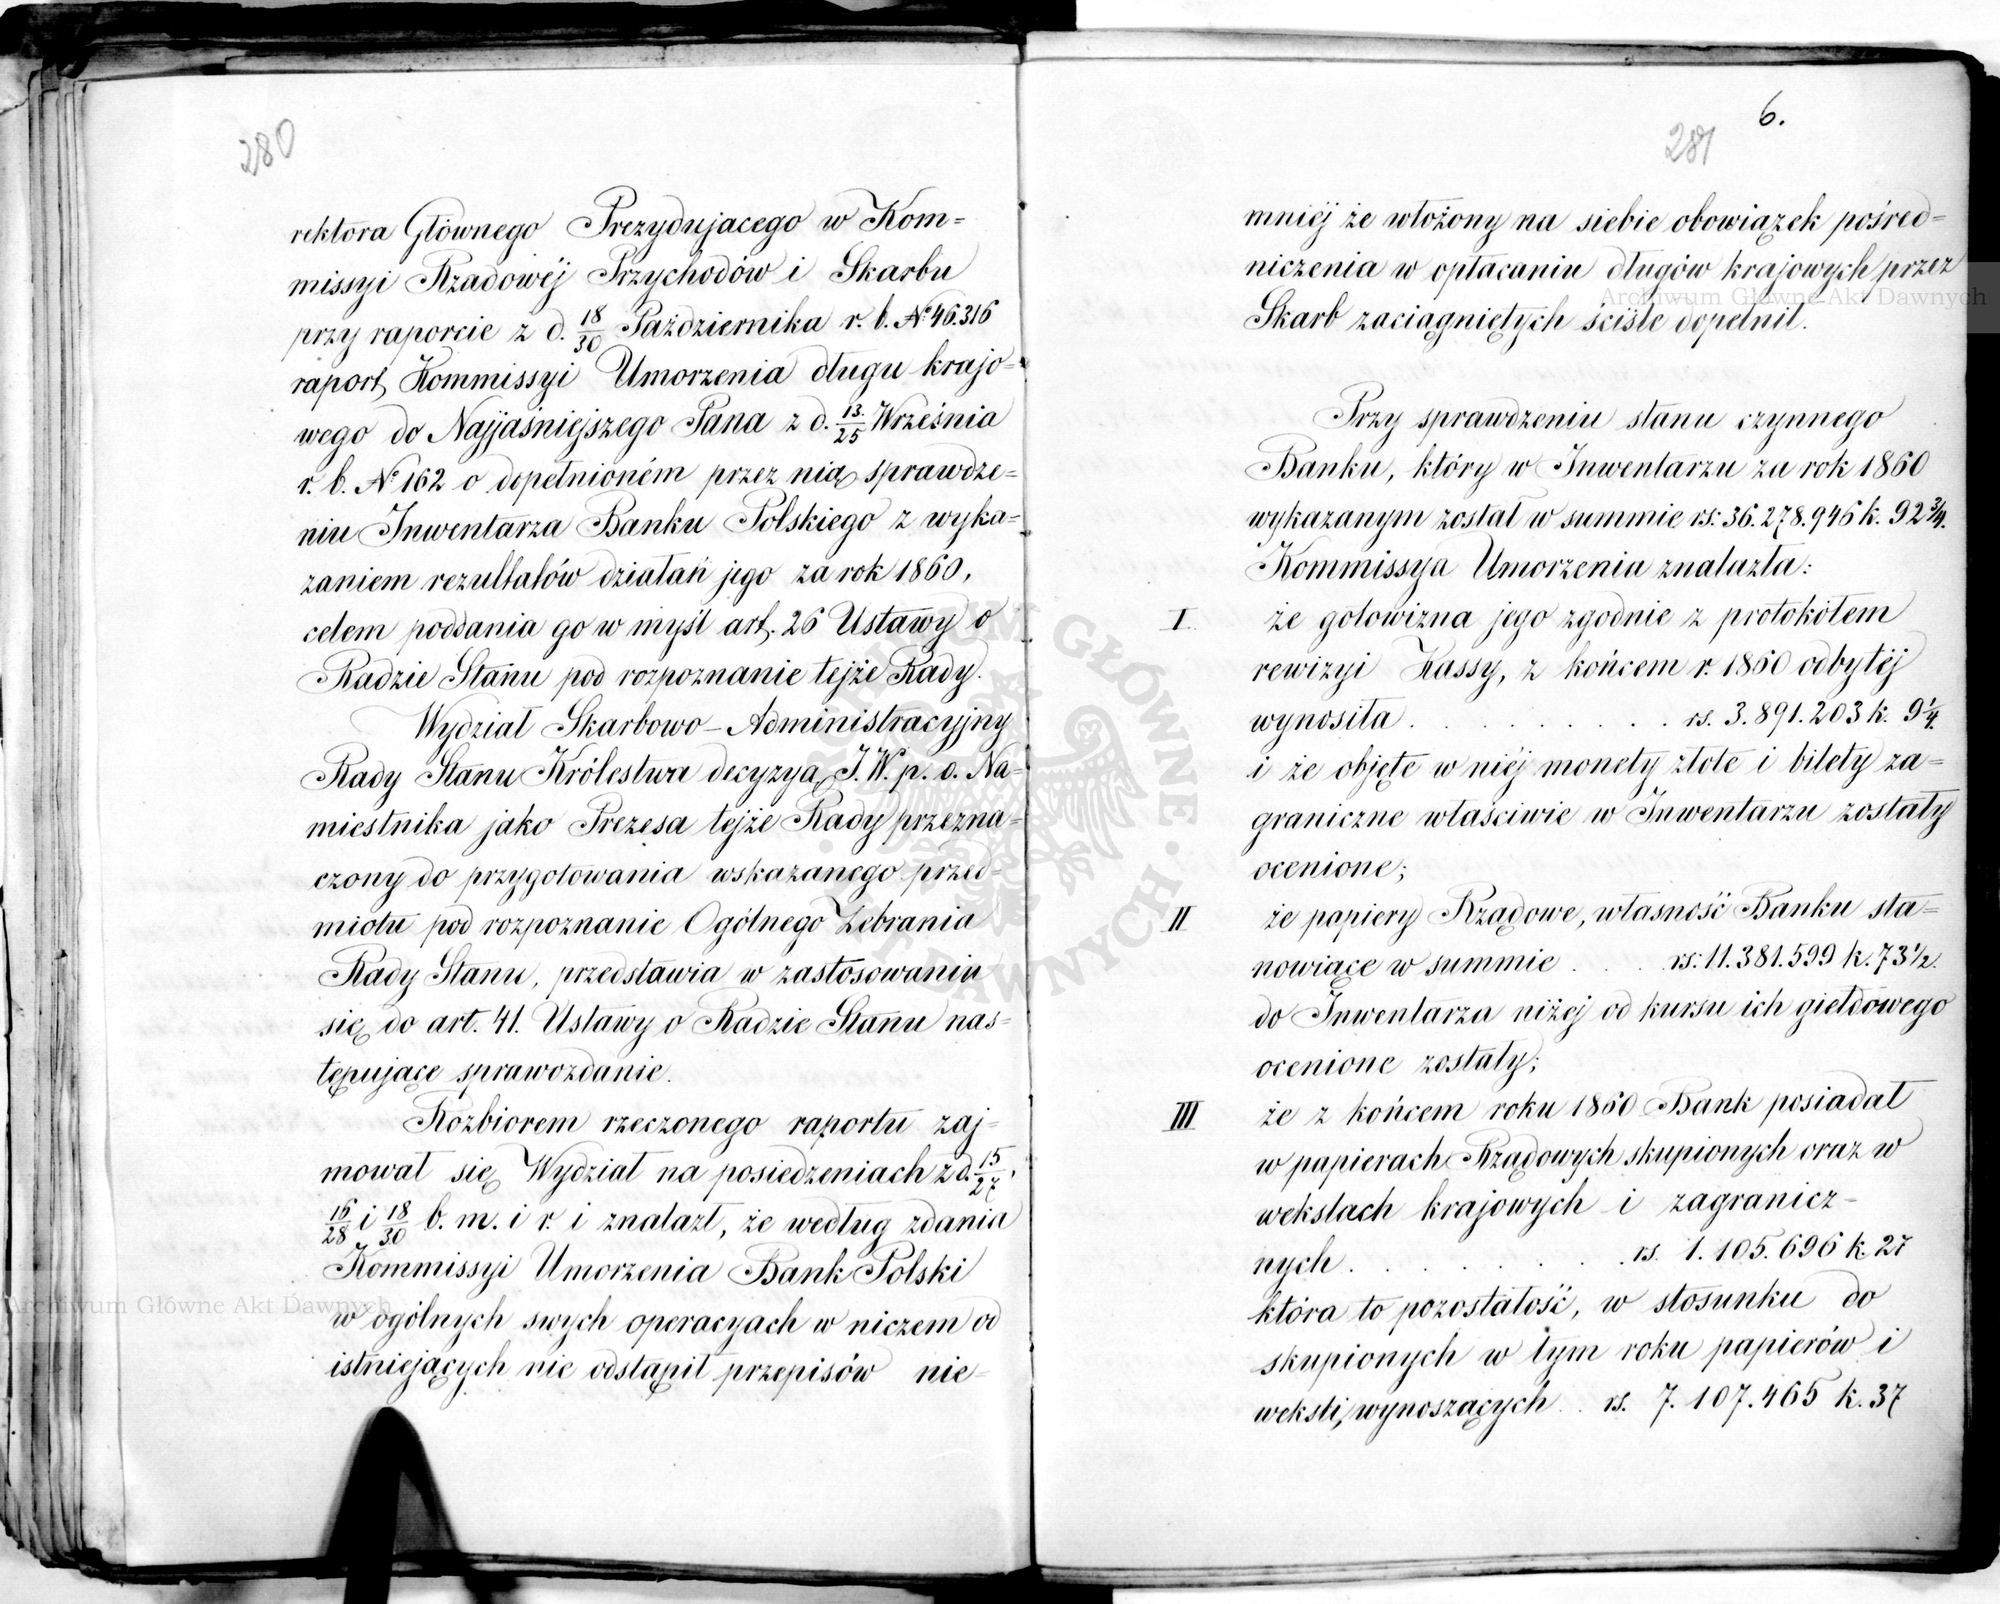 280
rektora Głównego Prezydujacego w Kom=
missyi Rządowéj Przychodów i Skarbu
przy raporcie z d. 18/30 Października r. b. № 46.316
raport Kommissyi Umorzenia długu krajo=
wego do Najjaśniejszego Pana z d. 13/25 Września
r. b. № 162 o dopełnioném przez nią sprawdze=
niu Inwentarza Banku Polskiego z wyka=
zaniem rezultatów działań jego za rok 1860,
celem poddania go w myśl art. 26 Ustawy o
Radzie Stanu pod rozpoznanie tejże Rady.
Wydział Skarbowo-Administracyjny
Rady Stanu Królestwa decyzyą J. W. p. o. Na=
miestnika jako Prezesa tejże Rady przezna=
czony do przygotowania wskazanego przed=
miotu pod rozpoznanie Ogólnego Zebrania
Rady Stanu, przedstawia w zastosowaniu
się do art. 41. Ustawy o Radzie Stanu nas=
tępujące sprawozdanie.
Rozbiorem rzeczonego raportu zaj=
mował się Wydział na posiedzeniach z d. 15/27,
16/28 i 18/30 b. m. i r. i znalazł, że według zdania
Kommissyi Umorzenia Bank Polski
w ogólnych swych operacyach w niczem od
istniejących nie odstąpił przepisów nie=
6.
281
mniéj że włożony na siebie obowiązek pośred=
niczenia w opłacaniu długów krajowych przez
Skarb zaciągniętych ściśle dopełnił.
Przy sprawdzeniu stanu czynnego
Banku, który w Inwentarzu za rok 1860
wykazanym został w summie rs: 36.278.946 k. 92 3/4.
Kommissya Umorzenia znalazła:
I. że gotowizna jego zgodnie z protokółem
rewizyi Kassy, z końcem r. 1860 odbytéj
wynosiła . . . . . . . . . . rs. 3.891.203 k. 9 1/4.
i że objęte w niéj monety złote i bilety za=
graniczne właściwie w Inwentarzu zostały
ocenione;
II że papiery Rządowe, własność Banku sta=
nowiące w summie . . . . rs: 11.381.599 k. 73 1/2.
do Inwentarza niżej od kursu ich giełdowego
ocenione zostały;
III że z końcem roku 1860 Bank posiadał
w papierach Rządowych skupionych oraz w
wekslach krajowych i zagranicz=
nych . . . . . . . . . rs. 1.105.696 k. 27
która to pozostałość, w stosunku do
skupionych w tym roku papierów i
weksli, wynoszących . . rs. 7.107.465 k. 37
Archiwum Główne Akt Dawnych
Archiwum Główne Akt Dawnych
ARCHIWUM GŁÓWNE AKT DAWNYCH